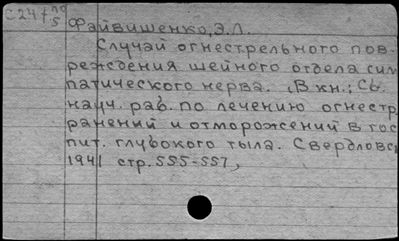 С 241 по 5
Файвишенко, Э.Л.
Случай огнестрельного пов-
реждения шейного отдела сим
патического нерва. В кн.: Сб.
науч. раб. по лечению огнестр.
ранений и отморожений в гос
пит. глубокого тыла. Свердловск
1941 стр. 555-557,